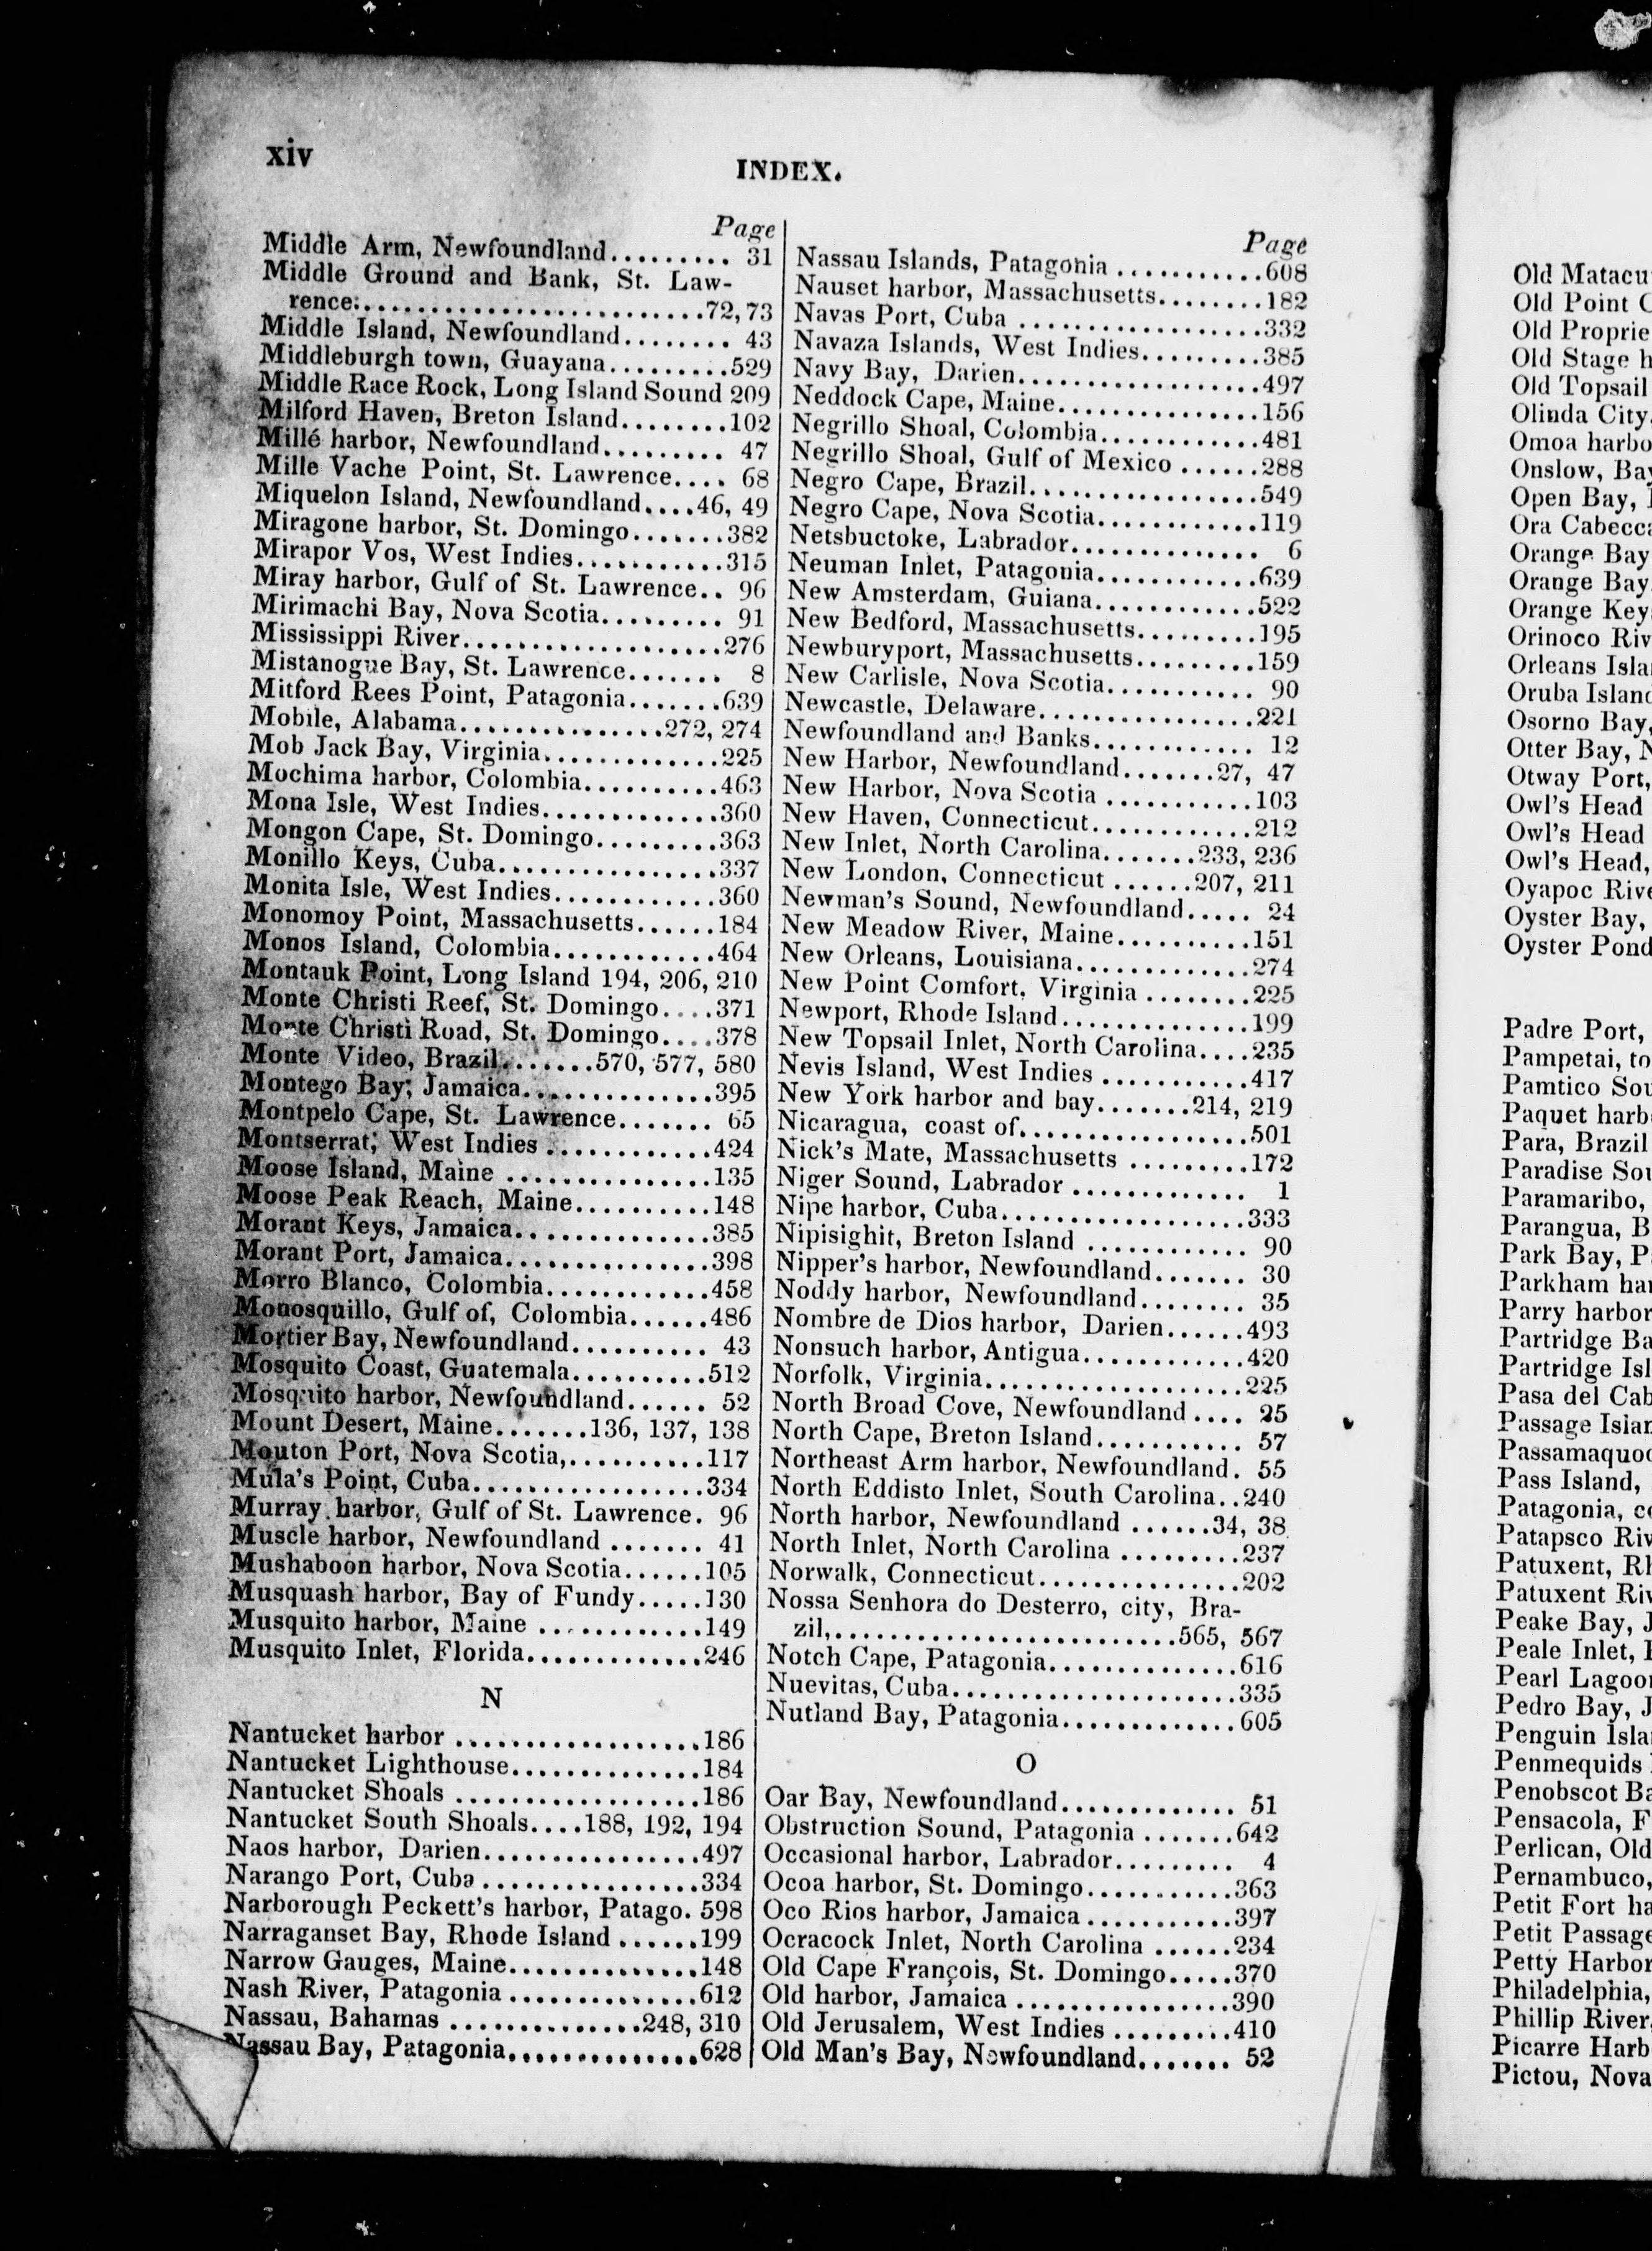 xiv
INDEX.
Page
Middle Arm, Newfoundland......... 31
Middle Ground and Bank, St. Law-
rence:..........................72,73
Middle Island, Newfoundland........ 43
Middleburgh town, Guayana.........529
Middle Race Rock, Long Island Sound 209
Milford Haven, Breton Island........102
Millé harbor, Newfoundland......... 47
Mille Vache Point, St. Lawrence.... 68
Miquelon Island, Newfoundland....46, 49
Miragone harbor, St. Domingo.......382
Mirapor Vos, West Indies...........315
Miray harbor, Gulf of St. Lawrence.. 96
Mirimachi Bay, Nova Scotia......... 91
Mississippi River....................276
Mistanogue Bay, St. Lawrence....... 8
Mitford Rees Point, Patagonia.......639
Mobile, Alabama...............272, 274
Mob Jack Bay, Virginia.............225
Mochima harbor, Colombia..........463
Mona Isle, West Indies.............360
Mongon Cape, St. Domingo.........363
Monillo Keys, Cuba................337
Monita Isle, West Indies............360
Monomoy Point, Massachusetts......184
Monos Island, Colombia............464
Montauk Point, Long Island 194, 206, 210
Monte Christi Reef, St. Domingo....371
Monte Christi Road, St. Domingo....378
Monte Video, Brazil.......570, 577, 580
Montego Bay, Jamaica..............395
Montpelo Cape, St. Lawrence....... 65
Montserrat, West Indies ............424
Moose Island, Maine ...............135
Moose Peak Reach, Maine..........148
Morant Keys, Jamaica..............385
Morant Port, Jamaica...............398
Morro Blanco, Colombia............458
Monosquillo, Gulf of, Colombia......486
Mortier Bay, Newfoundland.......... 43
Mosquito Coast, Guatemala..........512
Mosquito harbor, Newfoundland...... 52
Mount Desert, Maine.......136, 137, 138
Mouton Port, Nova Scotia,..........117
Mula's Point, Cuba.................334
Murray harbor, Gulf of St. Lawrence. 96
Muscle harbor, Newfoundland ....... 41
Mushaboon harbor, Nova Scotia......105
Musquash harbor, Bay of Fundy.....130
Musquito harbor, Maine ............149
Musquito Inlet, Florida.............246
N
Nantucket harbor ..................186
Nantucket Lighthouse..............184
Nantucket Shoals ..................186
Nantucket South Shoals....188, 192, 194
Naos harbor, Darien................497
Narango Port, Cuba ................334
Narborough Peckett's harbor, Patago. 598
Narraganset Bay, Rhode Island ......199
Narrow Gauges, Maine..............148
Nash River, Patagonia ..............612
Nassau, Bahamas ..............248, 310
Nassau Bay, Patagonia..............628
Page
Nassau Islands, Patagonia ...........608
Nauset harbor, Massachusetts........182
Navas Port, Cuba ..................332
Navaza Islands, West Indies.........385
Navy Bay, Darien..................497
Neddock Cape, Maine...............156
Negrillo Shoal, Colombia............481
Negrillo Shoal, Gulf of Mexico ......288
Negro Cape, Brazil.................549
Negro Cape, Nova Scotia............119
Netsbuctoke, Labrador.............. 6
Neuman Inlet, Patagonia............639
New Amsterdam, Guiana............522
New Bedford, Massachusetts.........195
Newburyport, Massachusetts.........159
New Carlisle, Nova Scotia........... 90
Newcastle, Delaware................221
Newfoundland and Banks............ 12
New Harbor, Newfoundland.......27, 47
New Harbor, Nova Scotia ...........103
New Haven, Connecticut............212
New Inlet, North Carolina.......233, 236
New London, Connecticut ......207, 211
Newman's Sound, Newfoundland..... 24
New Meadow River, Maine..........151
New Orleans, Louisiana.............274
New Point Comfort, Virginia ........225
Newport, Rhode Island..............199
New Topsail Inlet, North Carolina....235
Nevis Island, West Indies ...........417
New York harbor and bay.......214, 219
Nicaragua, coast of.................501
Nick's Mate, Massachusetts .........172
Niger Sound, Labrador ............. 1
Nipe harbor, Cuba..................333
Nipisighit, Breton Island ............ 90
Nipper's harbor, Newfoundland....... 30
Noddy harbor, Newfoundland........ 35
Nombre de Dios harbor, Darien......493
Nonsuch harbor, Antigua............420
Norfolk, Virginia...................225
North Broad Cove, Newfoundland .... 25
North Cape, Breton Island........... 57
Northeast Arm harbor, Newfoundland. 55
North Eddisto Inlet, South Carolina..240
North harbor, Newfoundland ......34, 38
North Inlet, North Carolina .........237
Norwalk, Connecticut...............202
Nossa Senhora do Desterro, city, Bra-
zil,..........................565, 567
Notch Cape, Patagonia..............616
Nuevitas, Cuba.....................335
Nutland Bay, Patagonia.............605
O
Oar Bay, Newfoundland............. 51
Obstruction Sound, Patagonia .......642
Occasional harbor, Labrador......... 4
Ocoa harbor, St. Domingo...........363
Oco Rios harbor, Jamaica ...........397
Ocracock Inlet, North Carolina ......234
Old Cape François, St. Domingo.....370
Old harbor, Jamaica ................390
Old Jerusalem, West Indies .........410
Old Man's Bay, Newfoundland....... 52
Old Matacu
Old Point
Old Proprie
Old Stage h
Old Topsail
Olinda City
Omoa harbo
Onslow, Bay
Open Bay,
Ora Cabecca
Orange Bay
Orange Bay
Orange Key
Orinoco Riv
Orleans Isla
Oruba Island
Osorno Bay,
Otter Bay, N
Otway Port,
Owl's Head
Owl's Head
Owl's Head,
Oyapoc Rive
Oyster Bay,
Oyster Pond
Padre Port,
Pampetai, to
Pamtico Sou
Paquet harb
Para, Brazil
Paradise Sou
Paramaribo,
Parangua, B
Park Bay, P
Parkham har
Parry harbor
Partridge Ba
Partridge Isl
Pasa del Cab
Passage Islan
Passamaquod
Pass Island,
Patagonia, co
Patapsco Riv
Patuxent, Rh
Patuxent Riv
Peake Bay, J
Peale Inlet,
Pearl Lagoon
Pedro Bay, J
Penguin Isla
Penmequids
Penobscot Ba
Pensacola, F
Perlican, Old
Pernambuco,
Petit Fort ha
Petit Passage
Petty Harbor
Philadelphia,
Phillip River,
Picarre Harb
Pictou, Nova